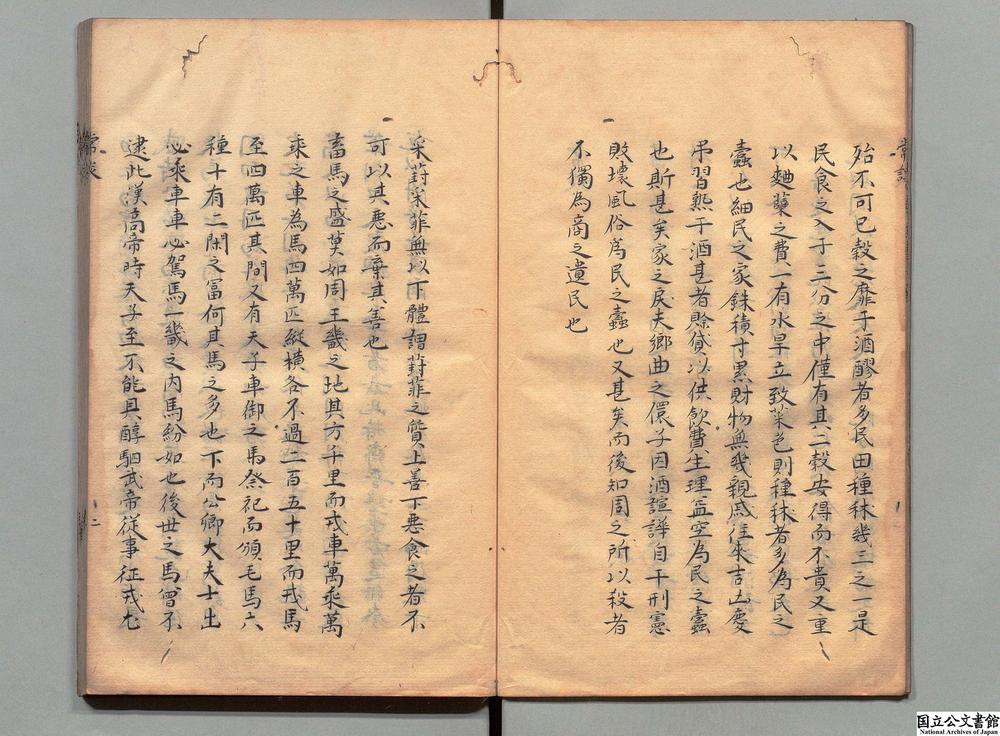 殆不可已穀之靡于酒醪者多民田種秫幾三之一是
民食之入于三分之中僅有其二穀安得而不貴又重
以麯糵之費一有水旱立致菜色則種秫者多為民之
蠹也細民之家銖積寸累財物無幾親戚徃來吉凶慶
吊習熟于酒甚者賒貸以供飲費生理益空為民之蠹
也斯甚矣家之戾夫鄉曲之儇子因酒諠譁自干刑憲
敗壞風俗為民之蠹也又甚矣而後知周之所以殺者
不獨為商之遺民也
采葑采菲無以下體謂葑菲之質上善下悪食之者不
可以其悪而棄其善也
畜馬之盛莫如周王畿之地其方千里而戎車萬乘萬
乘之車為馬四萬匹縱橫各不過二百五十里而戎馬
至四萬匹其間又有天子車御之馬祭祀而頒毛馬六
種十有二閑之冨何其馬之多也下而公卿大夫士出
必乘車車必駕馬一畿之内馬紛如也後世之馬曾不
逮此漢高帝時天子至不能具醇駟武帝従事征戎尤
常談
二
国立公文書館
National Archives of Japan